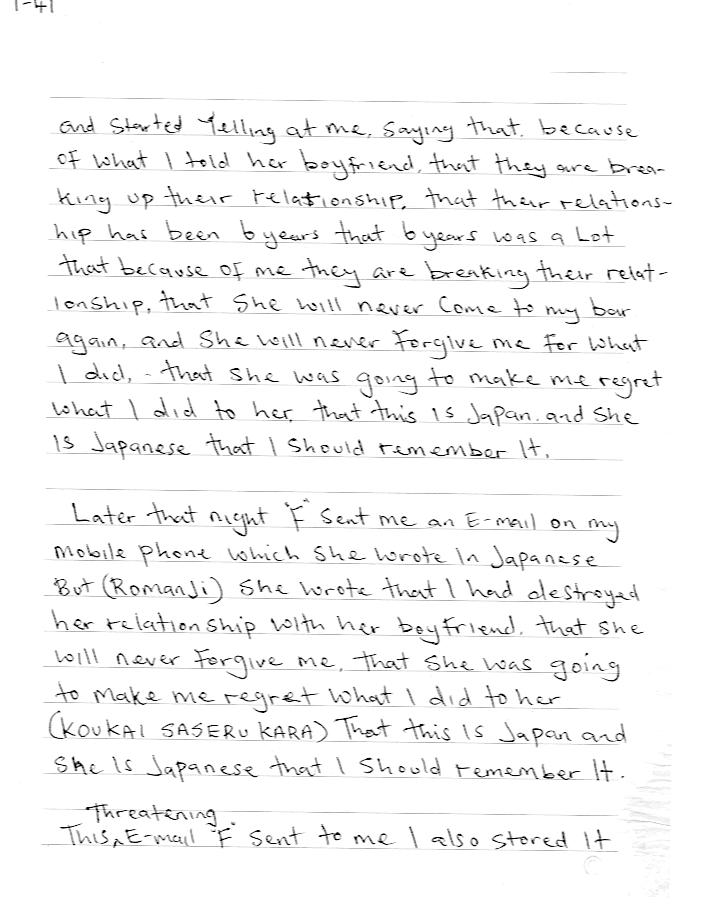 1-41
and started Yelling at me, saying that. because
of what I told her boyfriend, that they are brea-
king up their relationship, that their relations-
hip has been 6 years that 6 years was a Lot
that because of me they are breaking their relat-
ionship, that She will never Come to my bar
again, and She will never Forgive me For what
I did, - that she was going to make me regret
what I did to her, that this is Japan. and She
is Japanese that I Should remember It.
Later that night "F" Sent me an E-mail on my
mobile phone which She wrote In Japanese
But (RomanJi) She wrote that I had destroyed
her relationship with her boyfriend. that she
will never Forgive me, that She was going
to make me regret what I did to her
(KOUKAI SASERU KARA) That this Is Japan and
She Is Japanese that I Should remember It.
Threatening
This, E-mail "F" Sent to me I also stored It